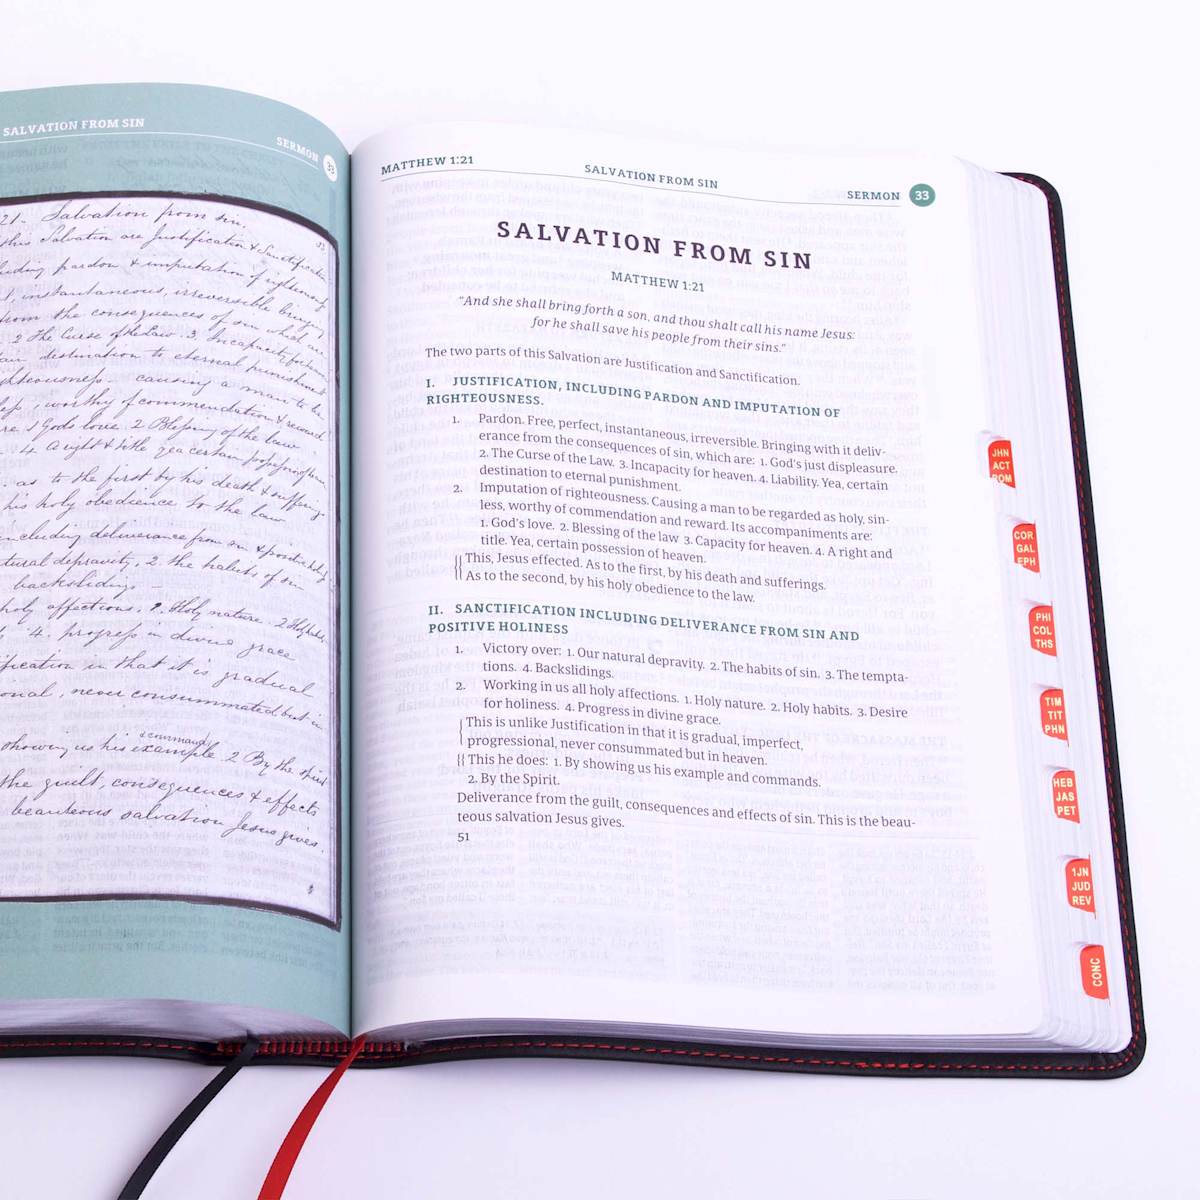 SALVATION FROM SIN
SERMON 33
21- Salvation from sin.
this Salvation are Justification & Sanctification
pardon & imputation of righteousness
instantaneous, irreversible bringing
from the consequences of sin which are
2 The Curse of the Law. 3. Incapacity for heaven
destination to eternal punishment
causing a man to be
worthy of commendation & reward
1 Gods love. 2 Blessing of the law
4. A right & title yea certain
as to the first by his death & sufferings
his holy obedience to the law
including deliverance from sin & positive
depravity, 2. the habits of sin
backsliding
holy affections. Holy nature. 2
4. progress in divine grace
in that it is gradual
never consummated but in
& command
showing us his example 2 By the spirit
the guilt, consequences & effects
beauteous salvation Jesus gives.
MATTHEW 1:21
SALVATION FROM SIN
SERMON 33
SALVATION FROM SIN
MATTHEW 1:21
“And she shall bring forth a son, and thou shalt call his name Jesus:
for he shall save his people from their sins.”
The two parts of this Salvation are Justification and Sanctification.
I. JUSTIFICATION, INCLUDING PARDON AND IMPUTATION OF
RIGHTEOUSNESS.
1. Pardon. Free, perfect, instantaneous, irreversible. Bringing with it deliv-
erance from the consequences of sin, which are: 1. God's just displeasure.
2. The Curse of the Law. 3. Incapacity for heaven. 4. Liability. Yea, certain
destination to eternal punishment.
2. Imputation of righteousness. Causing a man to be regarded as holy, sin-
less, worthy of commendation and reward. Its accompaniments are:
1. God's love. 2. Blessing of the law 3. Capacity for heaven. 4. A right and
title. Yea, certain possession of heaven.
This, Jesus effected. As to the first, by his death and sufferings.
As to the second, by his holy obedience to the law.
II. SANCTIFICATION INCLUDING DELIVERANCE FROM SIN AND
POSITIVE HOLINESS
1. Victory over: 1. Our natural depravity. 2. The habits of sin. 3. The tempta-
tions. 4. Backslidings.
2. Working in us all holy affections. 1. Holy nature. 2. Holy habits. 3. Desire
for holiness. 4. Progress in divine grace.
This is unlike Justification in that it is gradual, imperfect,
progressional, never consummated but in heaven.
This he does: 1. By showing us his example and commands.
2. By the Spirit.
Deliverance from the guilt, consequences and effects of sin. This is the beau-
teous salvation Jesus gives.
51
JHN
ACT
ROM
COR
GAL
EPH
PHI
COL
THS
TIM
TIT
PHN
HEB
JAS
PET
1JN
JUD
REV
CONC